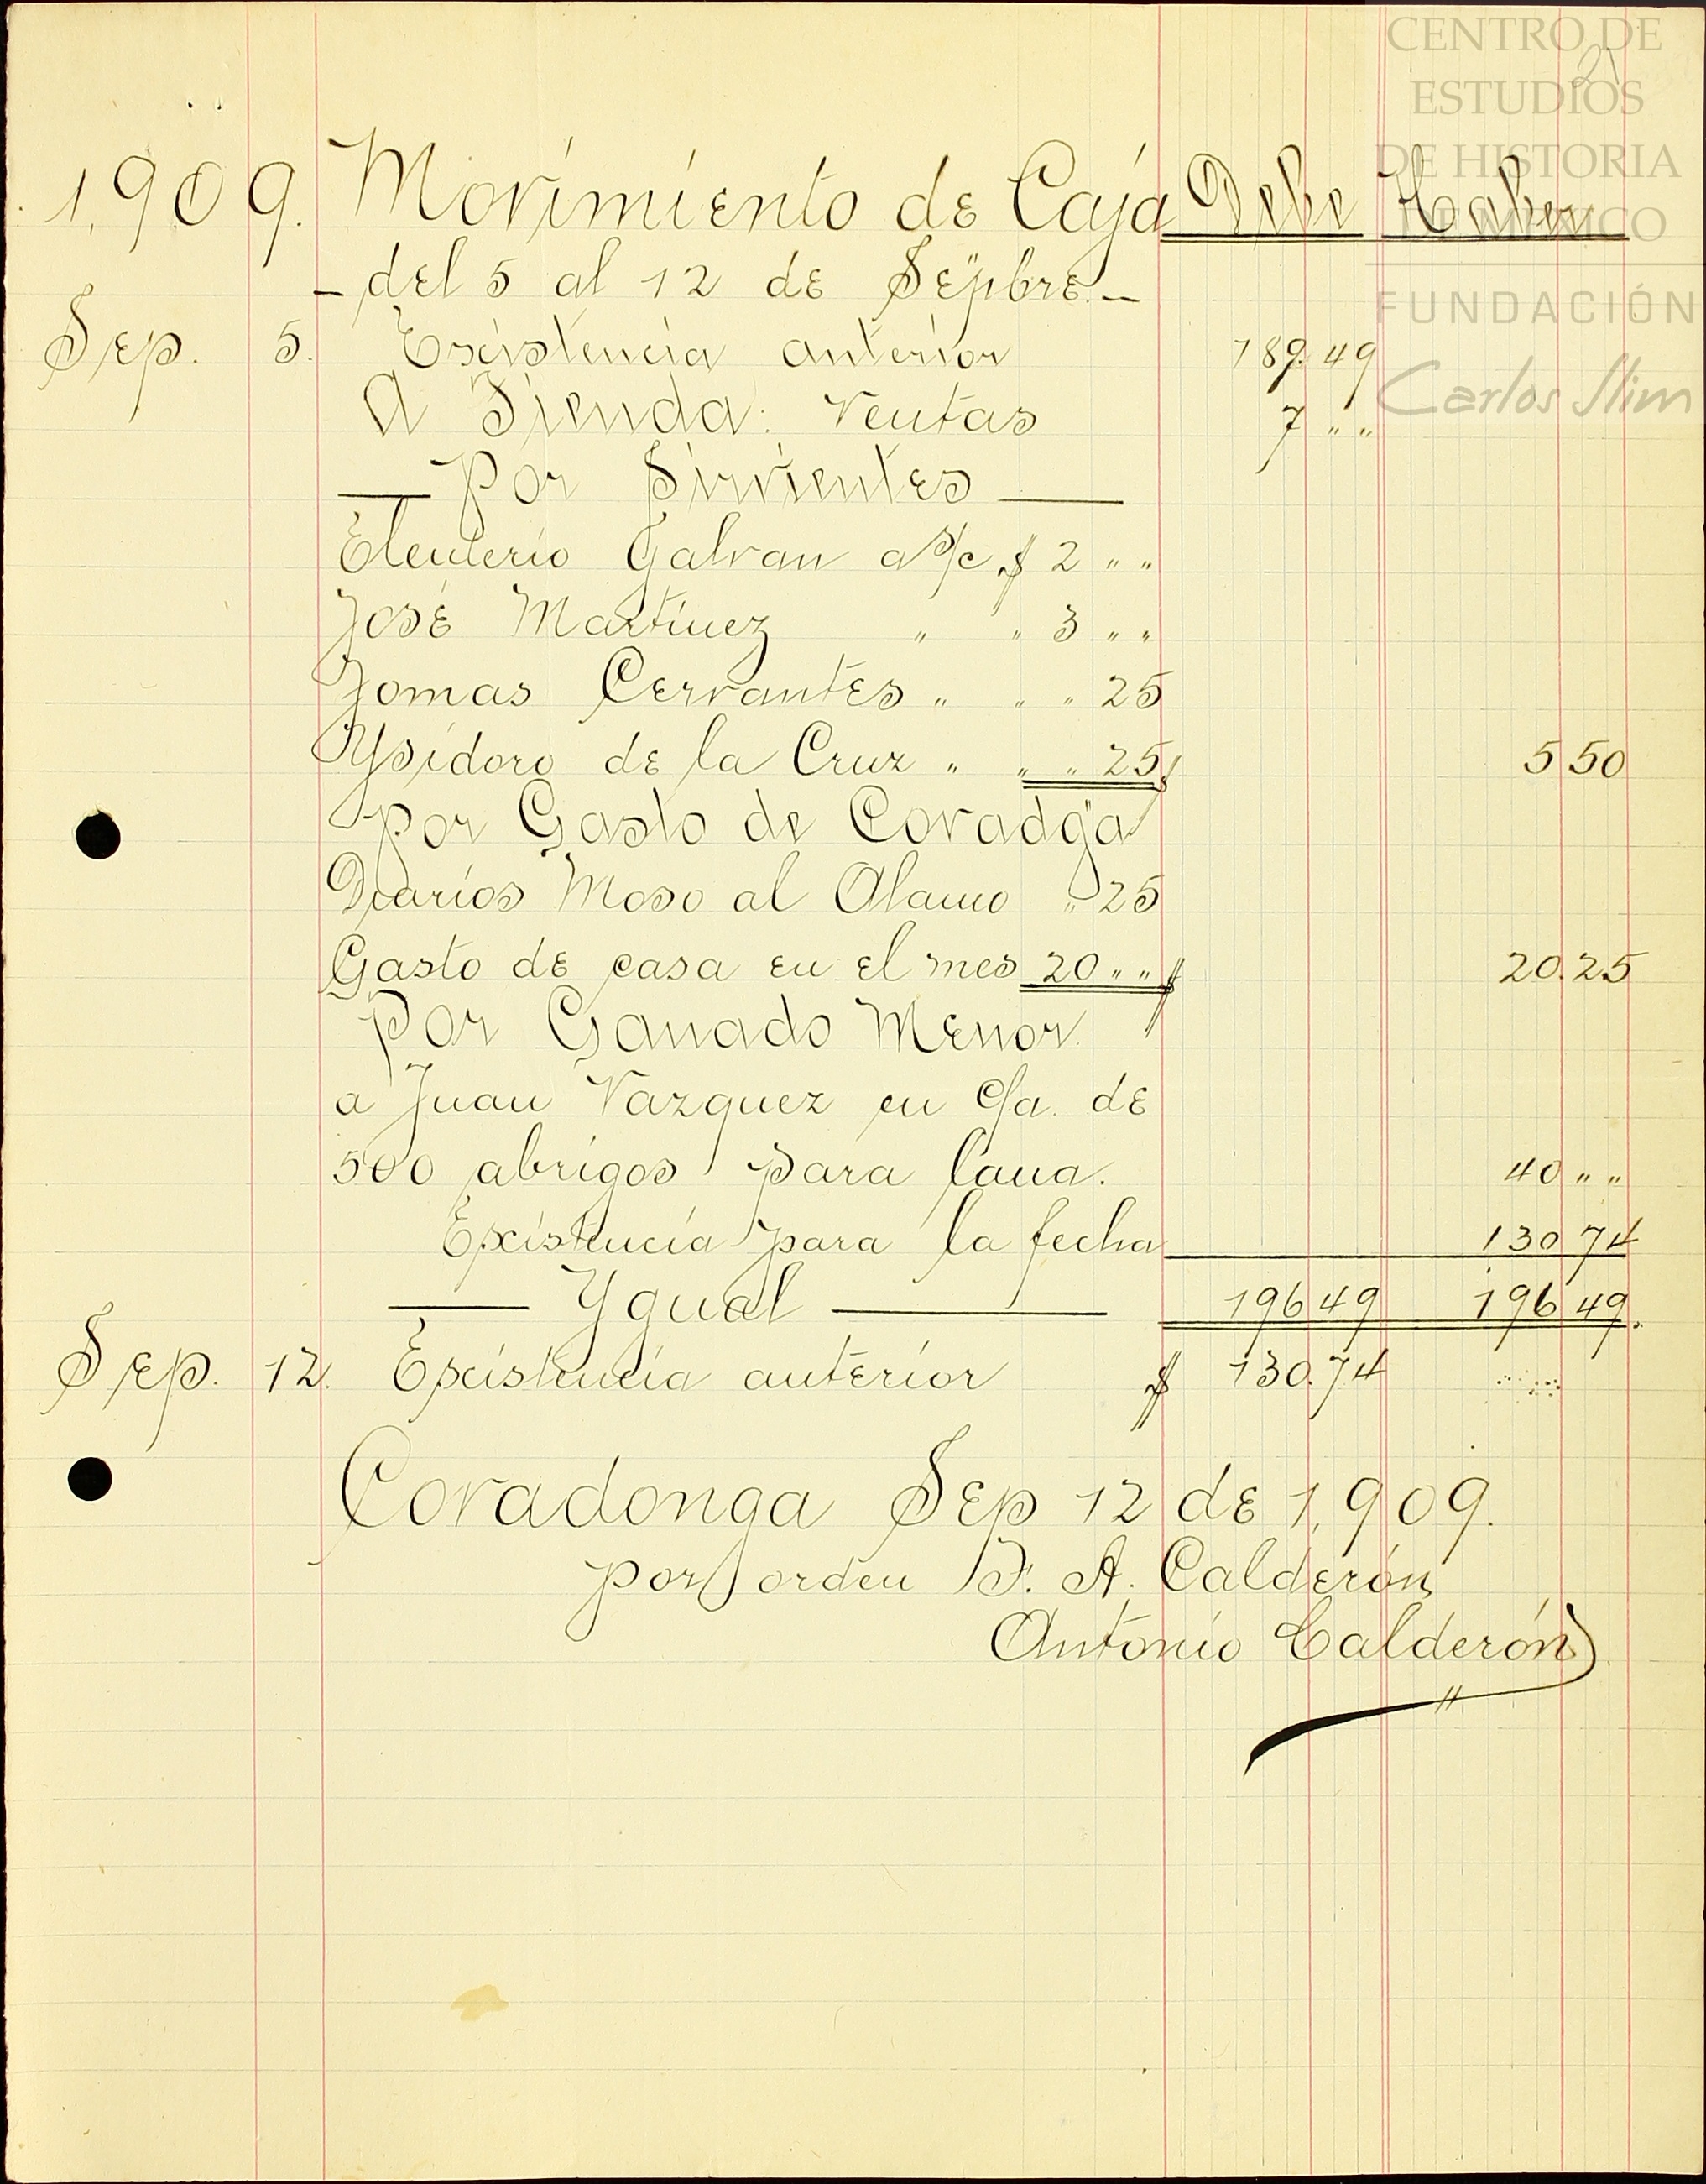 CENTRO DE
ESTUDIOS
DE HISTORIA
DE MÉXICO
FUNDACIÓN
Carlos Slim
1,909. Movimiento de Caja Debe Haber
- del 5 al 12 de Sepbre. -
Sep. 5. Existencia anterior 189.49
A Tienda: Ventas 7 " "
Por Sirvientes
Eleuterio Galvan a s/c $ 2 " "
José Martínez " " 3 " "
Tomas Cervantes " " " 25
Ysidoro de la Cruz " " " 25 $ 5 50
por Gasto de Covadga
Diarios Moso al Alamo " 25
Gasto de casa en el mes 20 " " $ 20.25
Por Ganado Menor
a Juan Vazquez en c/a. de
500 abrigos para lana. 40 " "
Existencia para la fecha 130 74
Ygual 196 49 196 49.
Sep. 12. Existencia anterior $ 130.74
Covadonga Sep 12 de 1,909.
por orden F. A. Calderón
Antonio Calderón